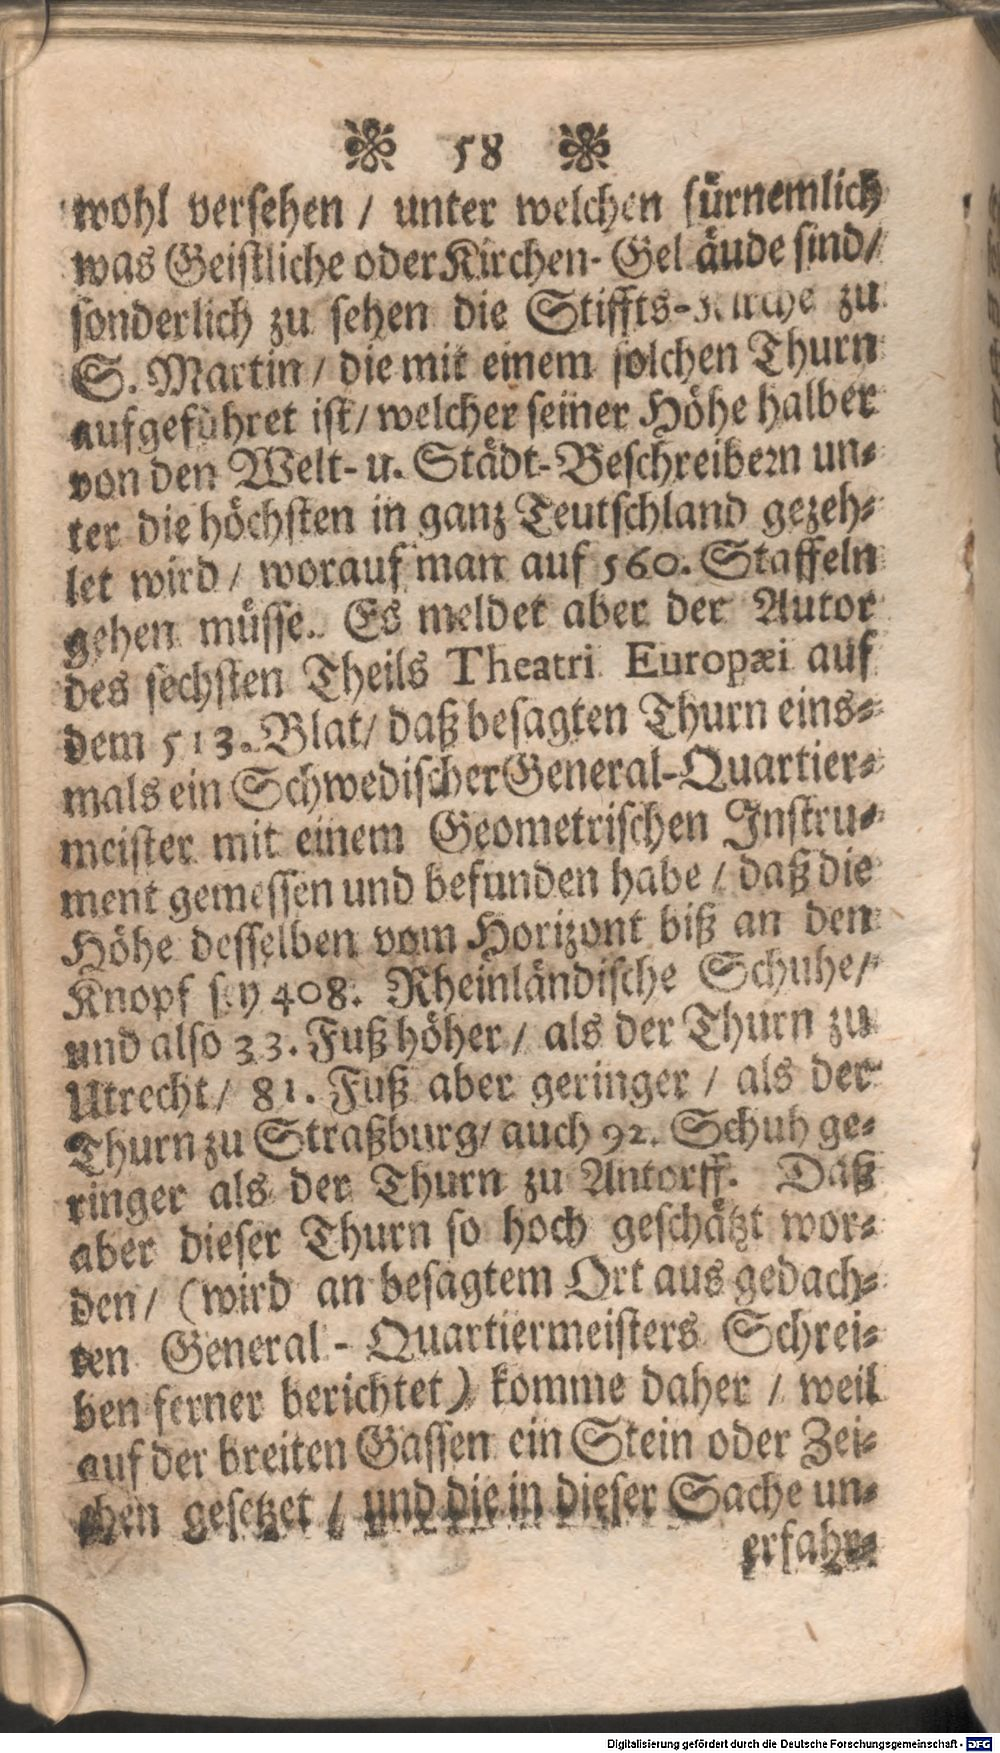 58
wohl versehen / unter welchen fürnemlich
was Geistliche oder Kirchen- Gel äude sind/
sonderlich zu sehen die Stiffts-Kirche zu
S. Martin / die mit einem solchen Thurn
aufgeführet ist/ welcher seiner Höhe halber
von den Welt- u. Städt-Beschreibern un-
ter die höchsten in ganz Teutschland gezeh-
let wird / worauf man auf 560. Staffeln
gehen müsse. Es meldet aber der Autor
des sechsten Theils Theatri Europæi auf
dem 513. Blat/ daß besagten Thurn eins-
mals ein Schwedischer General-Quartier-
meister mit einem Geometrischen Instru-
ment gemessen und befunden habe / daß die
Höhe desselben vom Horizont biß an den
Knopf sey 408. Rheinländische Schuhe/
und also 33. Fuß höher / als der Thurn zu
Utrecht/ 81. Fuß aber geringer / als der
Thurn zu Straßburg/ auch 92. Schuh ge-
ringer als der Thurn zu Antorff. Daß
aber dieser Thurn so hoch geschätzt wor-
den / (wird an besagtem Ort aus gedach-
ten General - Quartiermeisters Schrei-
ben ferner berichtet) komme daher / weil
auf der breiten Gassen ein Stein oder Zei-
chen gesetzet / und die in dieser Sache un-
erfahr-
Digitalisierung gefördert durch die Deutsche Forschungsgemeinschaft - DFG